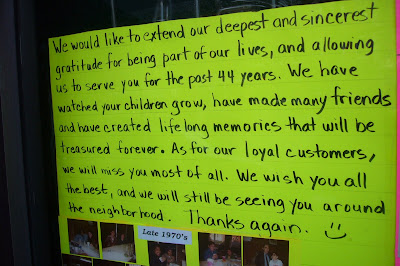 We would like to extend our deepest and sincerest
gratitude for being part of our lives, and allowing
us to serve you for the past 44 years. We have
watched your children grow, have made many friends
and have created lifelong memories that will be
treasured forever. As for our loyal customers,
we will miss you most of all. We wish you all
the best, and we will still be seeing you around
the neighborhood. Thanks again.
Late 1970's